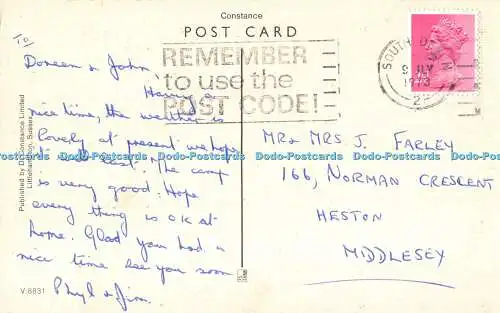 Constance
POST CARD
REMEMBER
to use the
POST CODE!
SOUTH D
To
Doreen & John
Having
nice time, the weather is
lovely at present we hope
it will last. The camp
is very good. Hope
every thing is OK at
home. Glad you had a
nice time see you soon
Phyl & Jim
MR & MRS J. FARLEY
166, NORMAN CRESCENT
HESTON
MIDDLESEY
Published by D. Constance Limited
Littlehampton, Sussex
V.8831
Dodo-Postcards Dodo-Postcards Dodo-Postcards Dodo-Postcards Dodo-Postcards